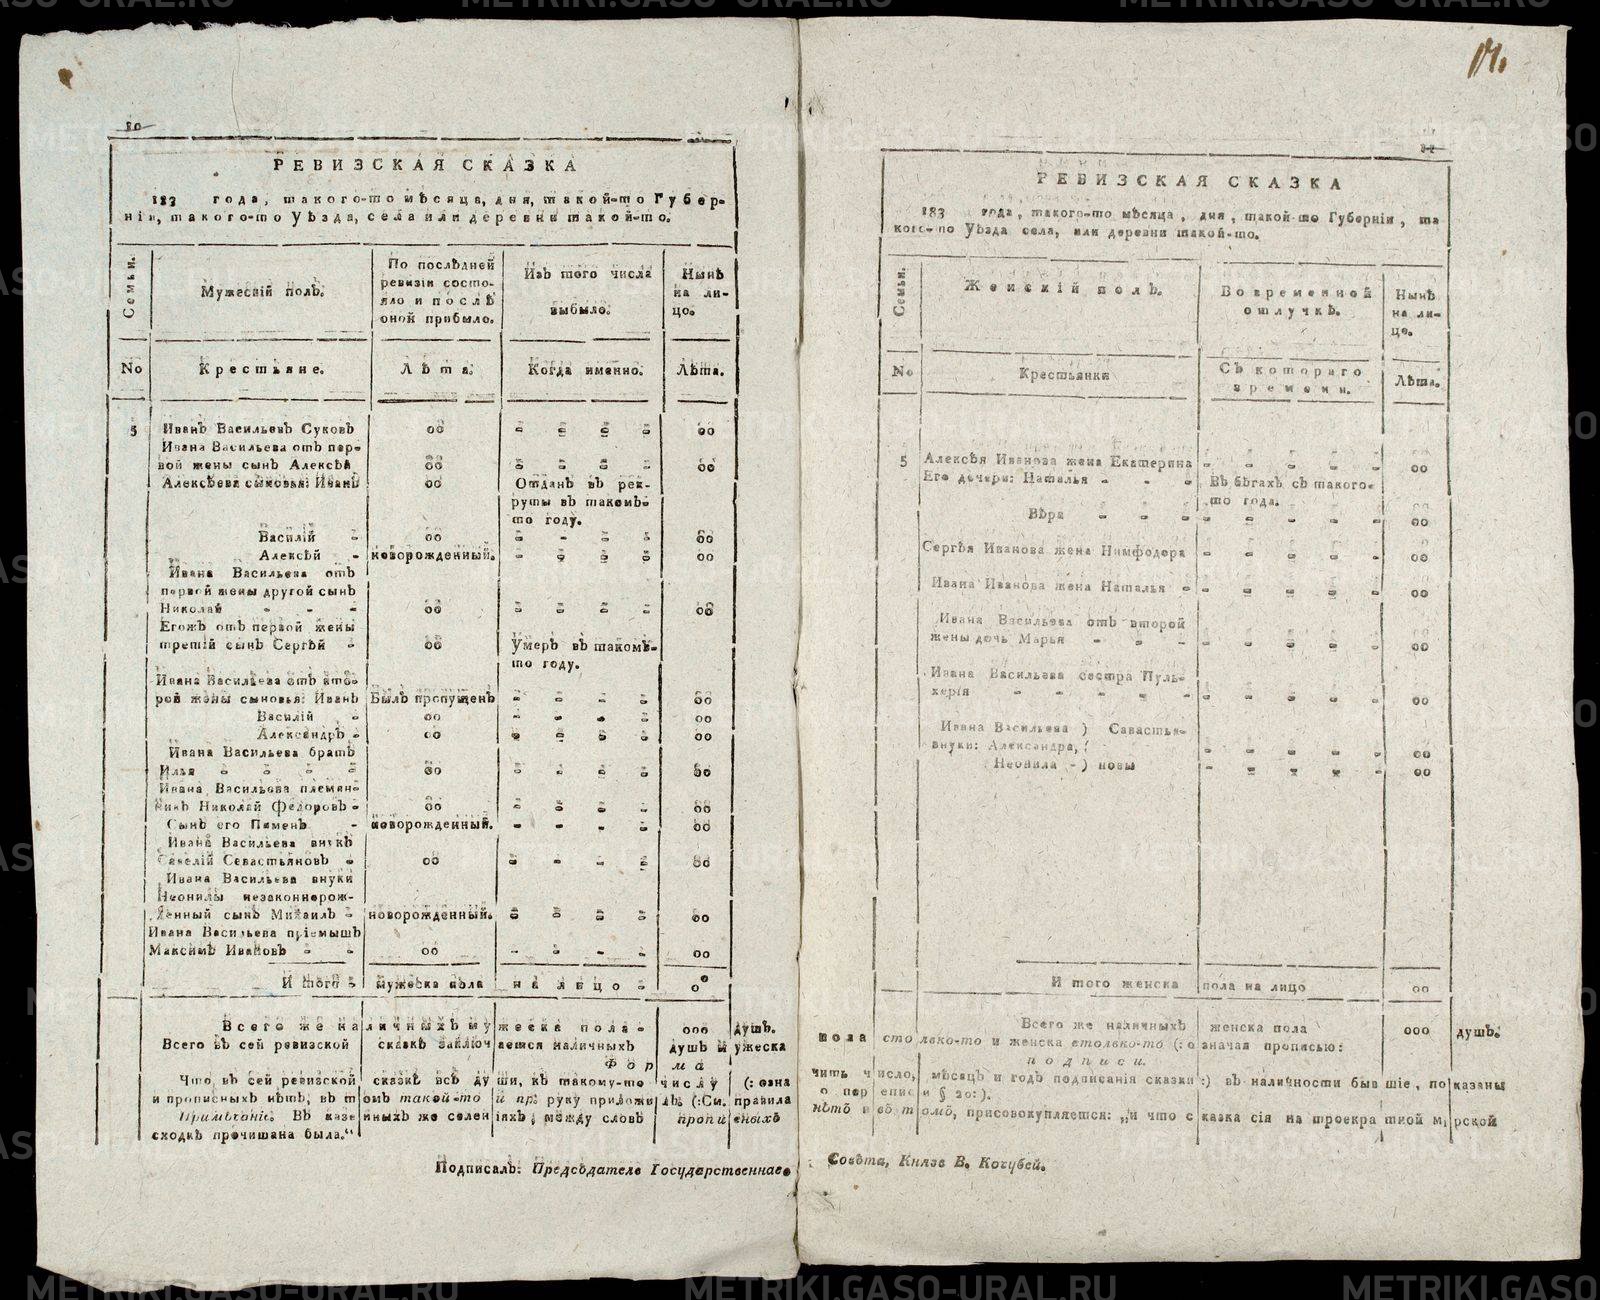 80
РЕВИЗСКАЯ СКАЗКА
183 года, такого-то мѣсяца, дня, такой-то Губер-
ніи, такого-то Уѣзда, села или деревни такой-то.
Семьи.
Мужескій полъ.
По послѣдней
ревизіи состо-
яло и послѣ
оной прибыло.
Изъ того числа
выбыло.
Нынѣ
на ли-
цо.
No
Крестьяне.
Лѣта.
Когда именно.
Лѣта.
5 Иванъ Васильевъ Суковъ 00 - - - - 00
Ивана Васильева отъ пер-
вой жены сынъ Алексѣй 00 - - - - 00
Алексѣева сыновья: Иванъ 00 Отданъ въ рек-
руты въ такомъ-
то году.
Василій - 00 - - - - 00
Алексѣй - новорожденный. - - - - 00
Ивана Васильева отъ
первой жены другой сынъ
Николай - - - 00 - - - - 00
Егожъ отъ первой жены
третій сынъ Сергѣй - 00 Умеръ въ такомъ-
то году.
Ивана Васильева отъ вто-
рой жены сыновья: Иванъ Былъ пропущенъ - - - - 00
Василій - 00 - - - - 00
Александръ - 00 - - - - 00
Ивана Васильева братъ
Илья - - - - 00 - - - - 00
Ивана Васильева племян-
никъ Николай Федоровъ - 00 - - - - 00
Сынъ его Пименъ - новорожденный. - - - - 00
Ивана Васильева внукъ
Савелій Севастьяновъ - 00 - - - - 00
Ивана Васильева внуки
Неонилы незаконнорож-
денный сынъ Михаилъ - новорожденный. - - - - 00
Ивана Васильева пріемышъ
Максимъ Ивановъ - - 00 - - - - 00
И того - мужеска пола на лицо - 00
Всего же наличныхъ мужеска пола - 000 душъ.
Всего въ сей ревизской сказкѣ заключается наличныхъ душъ мужеска
Форма
Что, въ сей ревизской сказкѣ всѣ души, къ такому-то числу (: озна
и прописныхъ нѣтъ, въ томъ такой-то и пр: руку приложилъ. (:См. правила
Примѣчаніе. Въ казенныхъ же селеніяхъ, между словъ прописныхъ
сходкѣ прочитана была."
Подписалъ: Предсѣдатель Государственнаго
14.
РЕВИЗСКАЯ СКАЗКА
183 года, такого-то мѣсяца, дня, такой-то Губерніи, та
кого-то Уѣзда села, или деревни такой-то.
Семьи.
Женскій полъ.
Во временной
отлучкѣ.
Нынѣ
на ли-
це.
No
Крестьянки
Съ котораго
времени.
Лѣта.
5 Алексѣя Иванова жена Екатерина - - - - - 00
Его дочери: Наталья - - - Въ бѣгахъ съ такого-
то года.
Вѣра - - - - - - - - 00
Сергѣя Иванова жена Нимфодора - - - - - 00
Ивана Иванова жена Наталья - - - - - - 00
Ивана Васильева отъ второй
жены дочь Марья - - - - - - - - 00
Ивана Васильева сестра Пуль-
херія - - - - - - - - - - 00
Ивана Васильева ) Савастья-
внуки: Александра, ( - - - - - 00
Неонила - ) новы - - - - - 00
И того женска пола на лицо 00
Всего же наличныхъ женска пола 000 душъ.
пола столько-то и женска столько-то (: означая прописью:
подписи.
чить число, мѣсяцъ и годъ подписанія сказки :) въ наличности бывшіе, показаны
о переписи § 20: ).
нѣтъ и въ томъ, присовокупляется: „и что сказка сія на троекратной мірской
Совѣта, Князь В. Кочубей.
METRIKI.GASO-URAL.RU